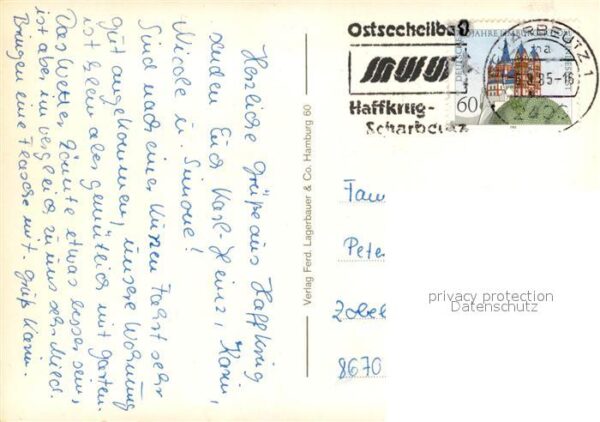 Herzliche Grüße aus Haffkrug
senden Euch Karl-Heinz, Karin,
Nicole u. Simone!
Sind nach einer kurzen Fahrt sehr
gut angekommen, unsere Wohnung
ist klein aber gemütlich mit Garten.
Das Wetter könnte etwas besser sein,
ist aber im vergleich zu uns sehr
Bringen eine Flasche mit. Gruß Karin.
Verlag Ferd. Lagerbauer & Co. Hamburg 60
Ostseeheilbad
Haffkrug-
Scharbeutz
60
Fam
Pete
Zobel
8670
privacy protection
Datenschutz